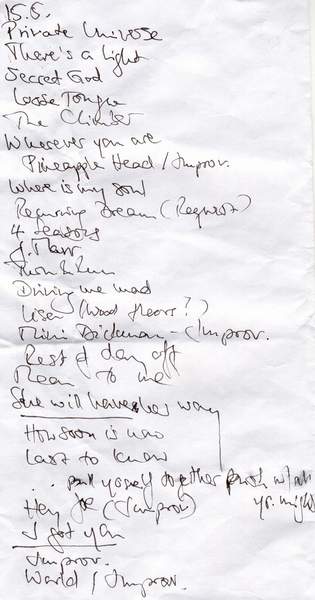 15.5.
Private Universe
There's a light
Secret God
Loose Tongue
The Climber
Wherever you are
Pineapple Head / Improv.
Where is my soul
Recurring Dream (Request)
4 seasons
J. Marr
Run & Run
Driving me mad
Lisa (Wood floors?)
Mimi Dickman - Improv.
Rest of day off
Mean to me
She will have her way
How soon is now
Last to know
.. pull yourself together push w/ all
yr. might
Hey Joe (Improv)
I got you
Improv.
World / Improv.